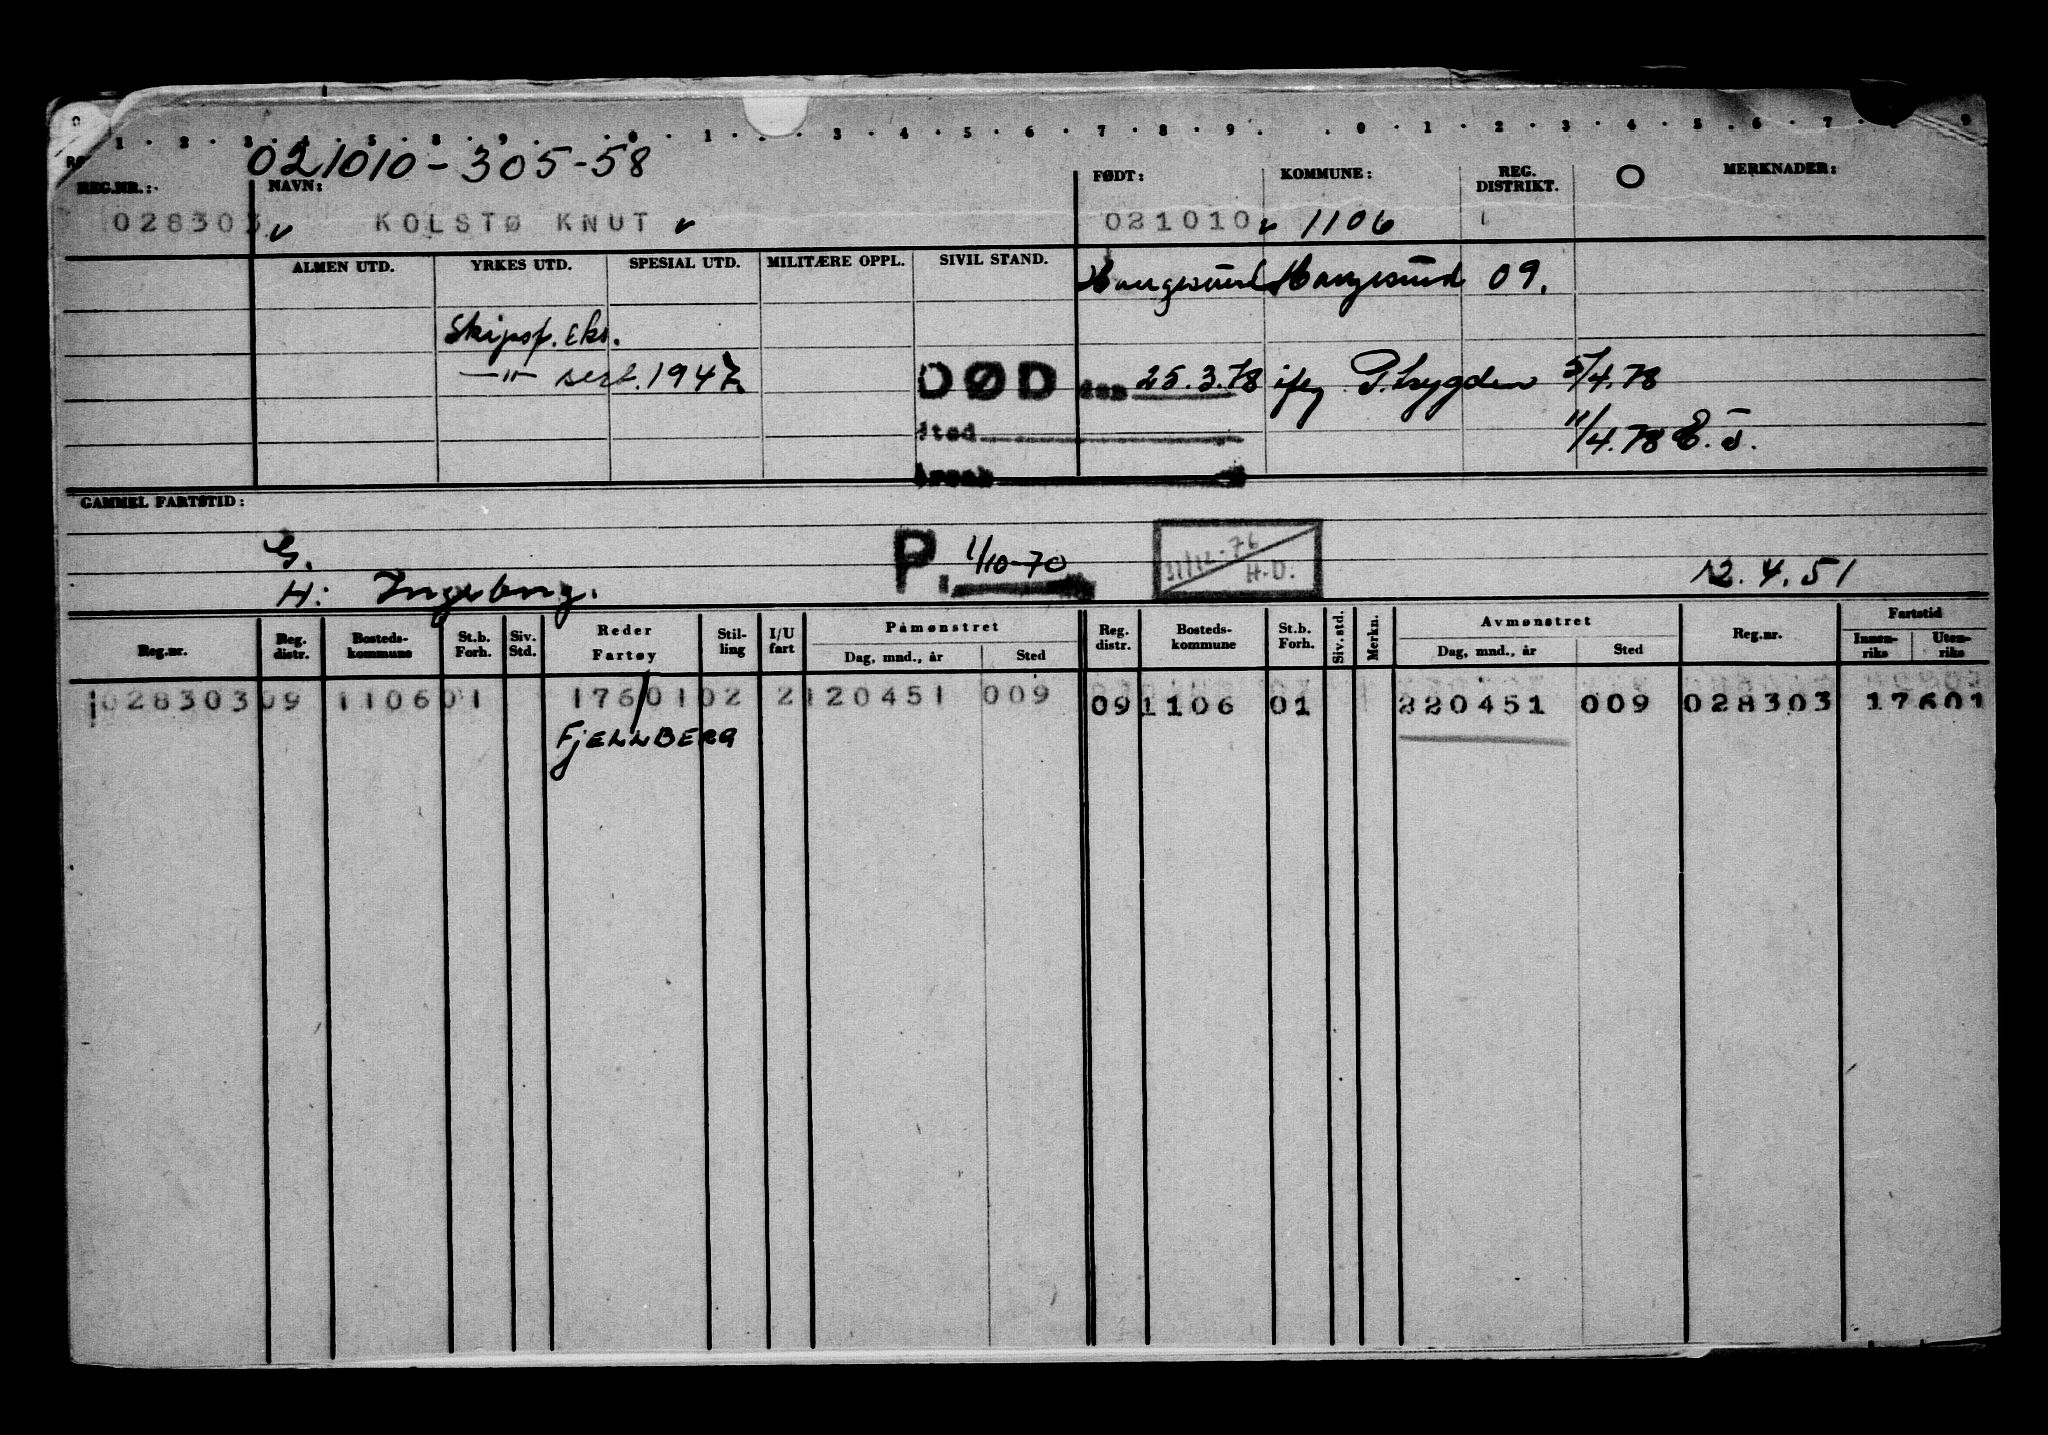 021010-305-58
REG.NR.: NAVN: FØDT: KOMMUNE: REG. DISTRIKT. O MERKNADER:
028303 KOLSTØ KNUT 021010 1106
ALMEN UTD. YRKES UTD. SPESIAL UTD. MILITÆRE OPPL. SIVIL STAND. Haugesund Haugesund 09.
Skipsf. eks.
—"— sert. 1947
DØD den 25.3.78 iflg P. trygden 5/4.78
Sted 11/4.78 E.J.
Årsak
GAMMEL FARTSTID:
G. P. 1/10-70 31/12-76 H.D.
H: Ingeborg. 12.4.51
Reg.nr. Reg. distr. Bosteds-kommune St.b. Forh. Siv. Std. Reder Fartøy Stil-ling I/U fart Påmønstret Dag, mnd., år Sted Reg. distr. Bosteds-kommune St.b. Forh. Siv. std. Merkn. Avmønstret Dag, mnd., år Sted Reg.nr. Fartstid Innen-riks Uten-riks
028303 09 1106 01 176/01 02 2 120451 009 09 1106 01 220451 009 028303 17601
FJELLBERG